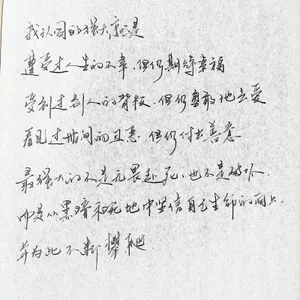 我认同的强大就是
遭受过人生的不幸，但仍期待幸福
受到过别人的背叛，但仍勇敢地去爱
看见过世间的丑恶，但仍付出善意
最强大的不是无畏赴死，也不是破坏
而是从黑暗和死地中坚信自己生命的向上
并为此不断攀爬